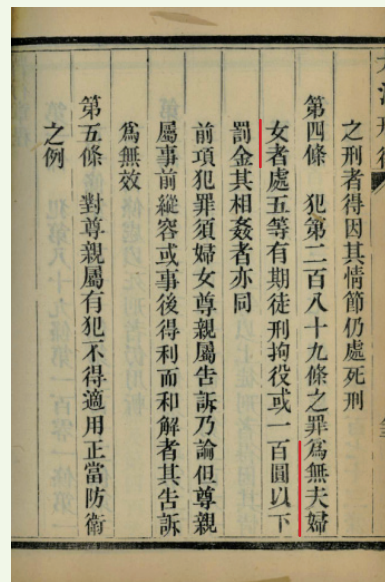 大清刑律
之刑者得因其情節仍處死刑
第四條 犯第二百八十九條之罪爲無夫婦
女者處五等有期徒刑拘役或一百圓以下
罰金其相姦者亦同
前項犯罪須婦女尊親屬告訴乃論但尊親
屬事前縱容或事後得利而和解者其告訴
爲無效
第五條 對尊親屬有犯不得適用正當防衛
之例